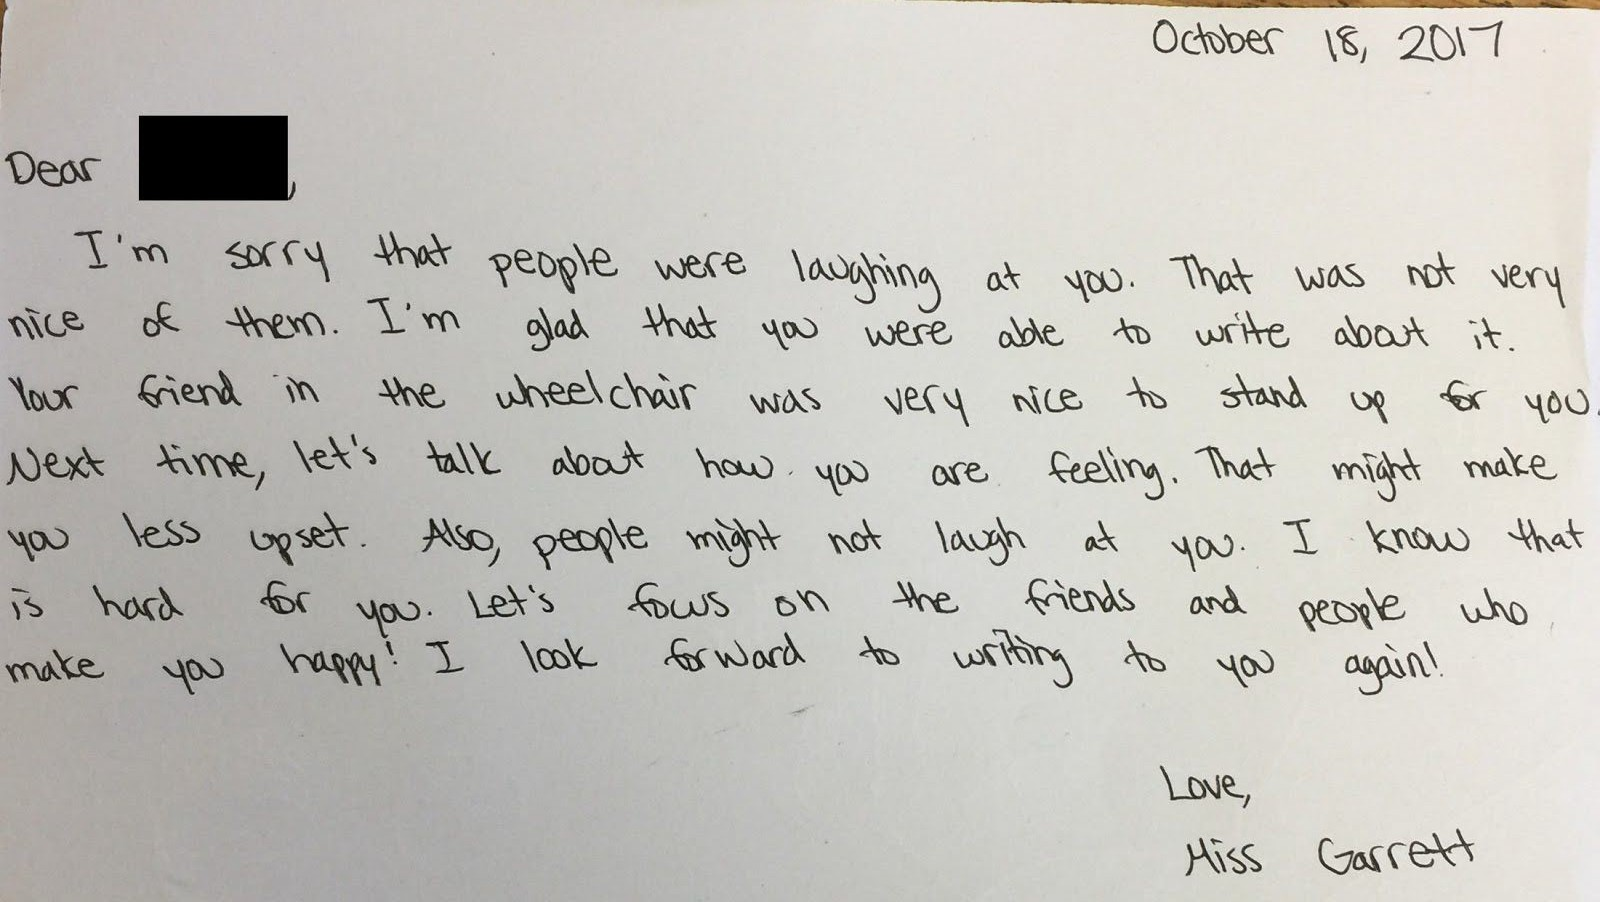 October 18, 2017
Dear ,
I'm sorry that people were laughing at you. That was not very
nice of them. I'm glad that you were able to write about it.
Your friend in the wheelchair was very nice to stand up for you.
Next time, let's talk about how you are feeling. That might make
you less upset. Also, people might not laugh at you. I know that
is hard for you. Let's focus on the friends and people who
make you happy! I look forward to writing to you again!
Love,
Miss Garrett